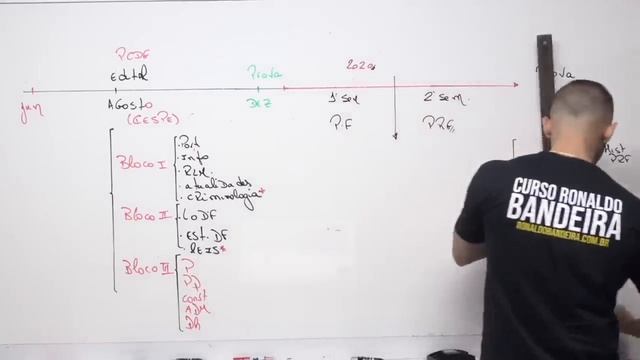 PCDF
Edital
Prova
2020
Prova
Jun
AGOSTO
DEZ
1º sem
2º sem.
(CESPE)
PF
PRF
Bloco I
. Port
. Info
. RLM.
. atualidades
. CRiminologia *
Bloco II
. LODF
. Est. DF
. LEIS *
Bloco III
P
PP
const
ADM
DH
PRF
CURSO RONALDO
BANDEIRA
RONALDOBANDEIRA.COM.BR